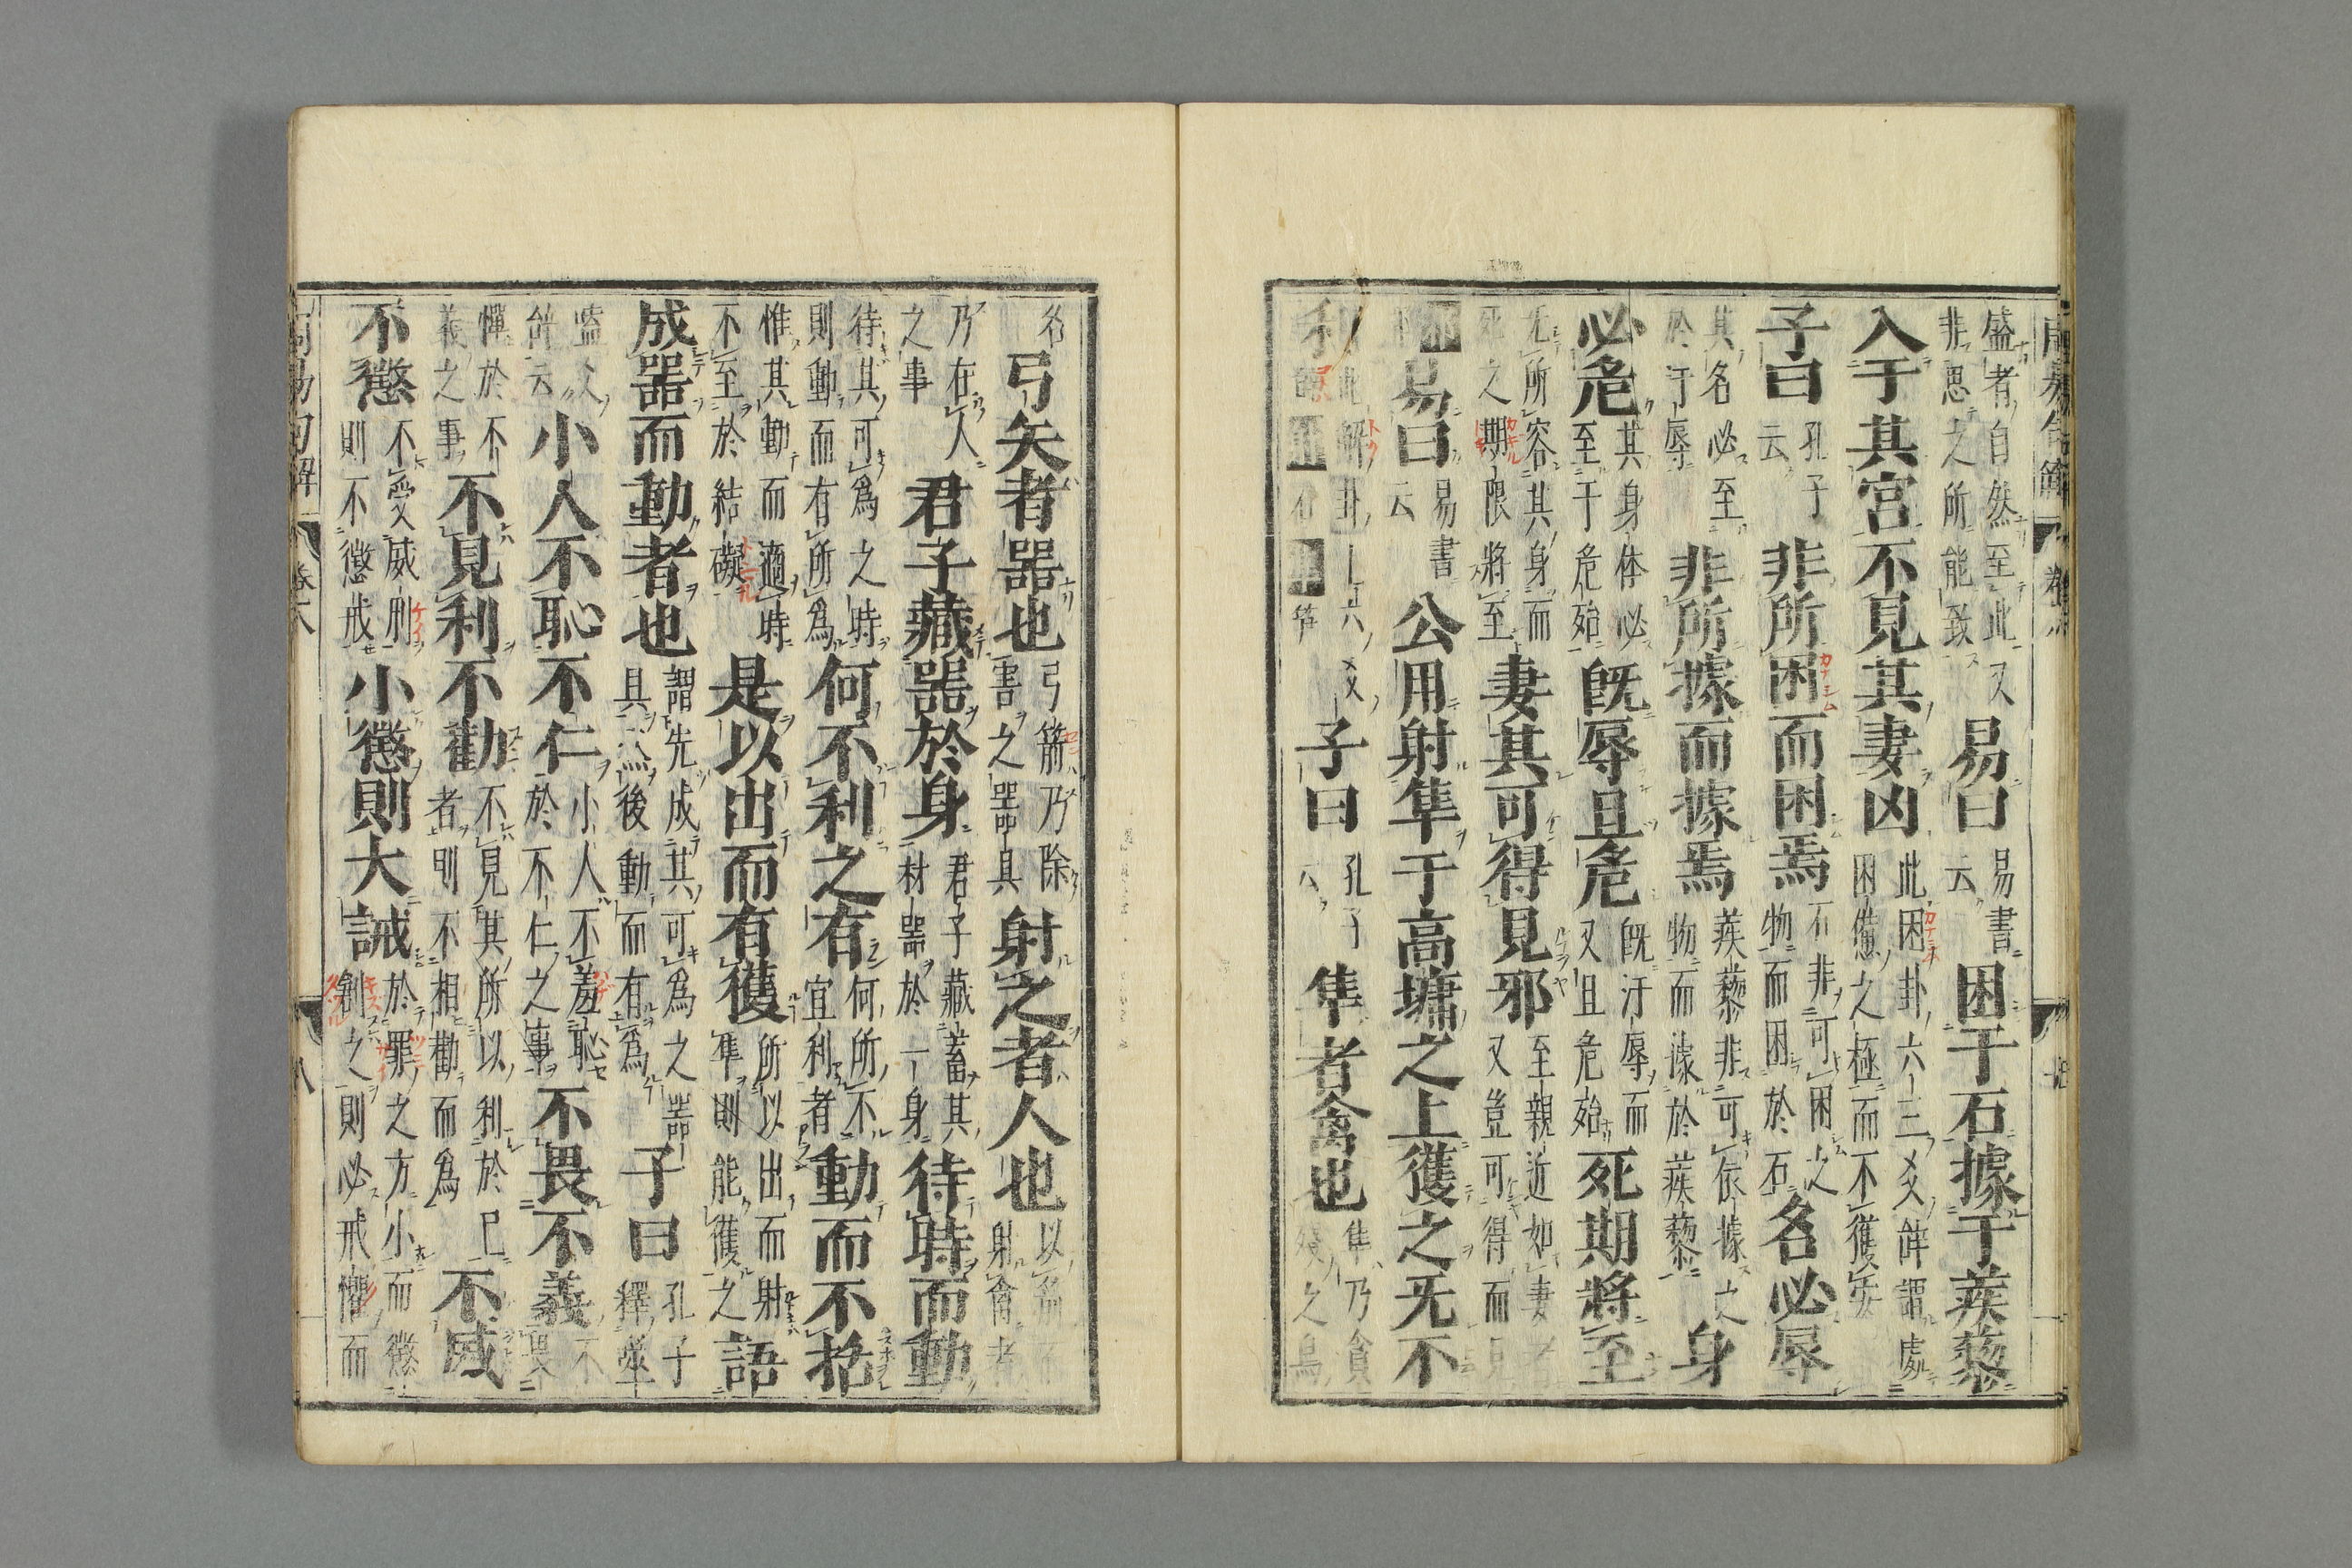 盛者自然至此又
非思之所能致
易曰
易書
云
困于石據于蒺藜
入于其宮不見其妻凶
此困卦六三爻辭謂處
困憊之極而不獲安
子曰
孔子
云
非所困而困焉
石非可困之
物而困於石
名必辱
其名必至
於汙辱
非所據而據焉
蒺藜非可依據之
物而據於蒺藜
身
必危
其身体必
至于危殆
既辱且危
既汙辱而
又且危殆
死期將至
无所容其身而
死之期限將至
妻其可得見邪
至親近如妻者
又豈可得而見
易曰
易書
云
公用射隼于高墉之上獲之无不
利
此解卦上六爻
子曰
孔子
云
隼者禽也
隼乃貪
殘之鳥
名
弓矢者器也
弓箭乃除
害之器具
射之者人也
射禽者
乃在人
之事
君子藏器於身
君子藏蓄其
材器於一身
待時而動
待其可為之時
則動而有所為
何不利之有
何所不
宜利者
動而不括
惟其動而適時
不至於結礙
是以出而有獲
所以出而射
隼則能獲之
語
成器而動者也
謂先成其可為之器
具然後動而有為
子曰
孔子
釋噬
嗑爻
辞云
小人不恥不仁
小人不羞恥
於不仁之事
不畏不義
不畏
憚於不
義之事
不見利不勸
不見其所以利於己
者則不相勸而為
不威
不懲
不受威刑
則不懲戒
小懲則大誡
於罪之方小而懲
創之則必戒懼而
周易句解
卷六
八